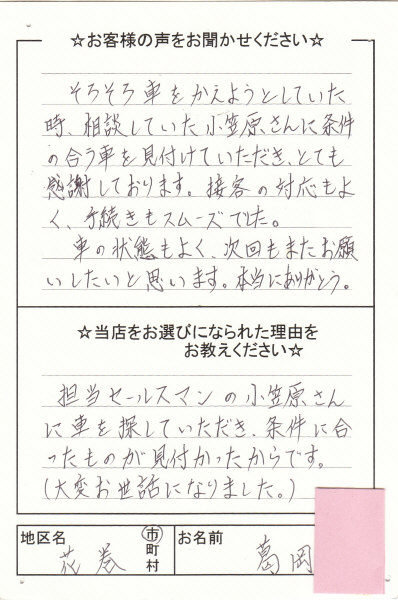 ☆お客様の声をお聞かせください☆
そろそろ車をかえようとしていた
時、相談していた小笠原さんに条件
の合う車を見付けていただき、とても
感謝しております。接客の対応もよ
く、手続きもスムーズでした。
車の状態もよく、次回もまたお願
いしたいと思います。本当にありがとう。
☆当店をお選びになられた理由を
お教えください☆
担当セールスマンの小笠原さん
に車を探していただき、条件に合
ったものが見付かったからです。
(大変お世話になりました。)
地区名 花巻 市町村 お名前 葛岡